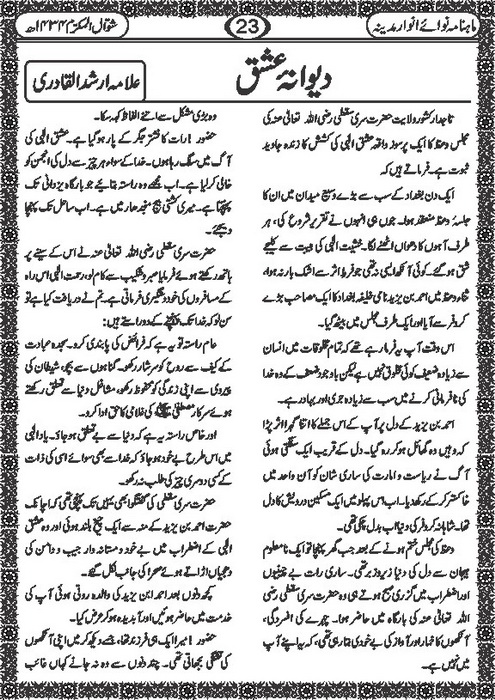 ماہنامہ نوائے انوارِ مدینہ
23
شوال المکرم ۱۴۳۴ھ
دیوانۂ عشق
علامہ ارشد القادری
تاجدار کشور ولایت حضرت سری سقطی رضی اللہ تعالیٰ عنہ کی
مجلس وعظ کا ایک پرسوز واقعہ عشق الٰہی کی کشش کا زندہ جاوید
ثبوت ہے۔ فرماتے ہیں کہ
ایک دن بغداد کے سب سے بڑے وسیع میدان میں ان کا
جلسۂ وعظ منعقد ہوا۔ جوں ہی انہوں نے تقریر شروع کی، ہر
طرف آہوں کا دھواں اٹھنے لگا۔ خشیت الٰہی کی ہیبت سے کلیجے
شق ہو گئے۔ کوئی آنکھ ایسی نہ تھی جو فرط اثر سے اشک بار نہ ہو،
اثناء وعظ میں احمد بن یزید نامی خلیفہ بغداد کا ایک مصاحب بڑے
کروفر سے آیا اور ایک طرف مجلس میں بیٹھ گیا۔
اس وقت آپ یہ فرما رہے تھے کہ تمام مخلوقات میں انسان
سے زیادہ ضعیف کوئی مخلوق نہیں ہے لیکن باوجود ضعف کے وہ خدا
کی نافرمانی کرنے میں سب سے زیادہ جری اور بہادر ہے۔
احمد بن یزید کے دل پر آپ کے اس جملے کا اتنا گہرا اثر پڑا
کہ وہیں وہ گھائل ہو کر رہ گیا۔ دل کے قریب ایک سلگتی ہوئی
آگ نے ریاست و امارت کی ساری شان کو آن واحد میں
خاکستر کر کے رکھ دیا۔ اب اس پہلو میں ایک مسکین درویش کا دل
تھا۔ شاہانہ کروفر کی دنیا اب بدل چکی تھی۔
وعظ کی مجلس ختم ہونے کے بعد جب گھر پہنچا تو ایک نامعلوم
ہیجان سے دل کی دنیا زیروزبر تھی۔ ساری رات بے چینیوں
اور اضطراب میں گزری صبح ہوتے ہی وہ حضرت سری سقطی رضی
اللہ تعالیٰ عنہ کی بارگاہ میں حاضر ہوا۔ چہرے کی افسردگی،
آنکھوں کا خمار اور آواز کی بے خودی بتا رہی تھی، کہ یہ اپنے آپ
میں نہیں ہے۔
وہ بڑی مشکل سے اتنے الفاظ کہہ سکا۔
حضور! رات کا نشتر جگر کے پار ہو گیا ہے۔ عشق الٰہی کی
آگ میں سلگ رہا ہوں۔ خدا کے سوا، ہر چیز سے دل کی انجمن کو
خالی کر لیا ہے۔ اب مجھے وہ راستہ بتائیے جو بارگاہ یزدانی تک
پہنچاتا ہے۔ میری کشتی بیچ منجدھار میں ہے۔ اب ساحل تک پہنچا
دیجئے۔
حضرت سری سقطی رضی اللہ تعالیٰ عنہ نے اس کے سینے پر
ہاتھ رکھتے ہوئے فرمایا صبر و شکیب سے کام لو، رحمت الٰہی اس راہ
کے مسافروں کی خود دستگیری فرماتی ہے۔ تم نے دریافت کیا ہے تو
سن لو کہ خدا تک پہنچنے کے دو راستے ہیں:
عام راستہ تو یہ ہے کہ فرائض کی پابندی کرو۔ سجدہ عبادت
کے کیف سے روح کو سرشار رکھو۔ گناہوں سے بچو، شیطان کی
پیروی سے اپنی زندگی کو محفوظ رکھو، مشاغل دنیا سے تعلق رکھتے
ہوئے سرکار مصطفیٰ ﷺ کی غلامی کا حق ادا کرو۔
اور خاص راستہ یہ ہے کہ دنیا سے بے تعلق ہو جاؤ۔ یاد الٰہی
میں اس طرح بے خود ہو جاؤ کہ خدا سے بھی سوائے اسی کی ذات
کے کسی دوسری چیز کی طلب نہ رکھو۔
حضرت سری سقطی کی گفتگو ابھی یہیں تک پہنچی تھی کہ اچانک
حضرت احمد بن یزید کے منہ سے ایک چیخ بلند ہوئی اور وہ عشق
الٰہی کے اضطراب میں بے خود و مستانہ وار جیب و دامن کی
دھجیاں اڑاتے ہوئے صحرا کی جانب نکل گئے۔
کچھ دنوں بعد احمد ابن یزید کی والدہ روتی ہوئی آپ کی
خدمت میں حاضر ہوئیں اور آبدیدہ ہو کر عرض کیا۔
حضور! میرا ایک ہی فرزند تھا، جسے دیکھ کر میں اپنی آنکھوں
کی تشنگی بجھاتی تھی۔ چند دنوں سے وہ نہ جانے کہاں غائب